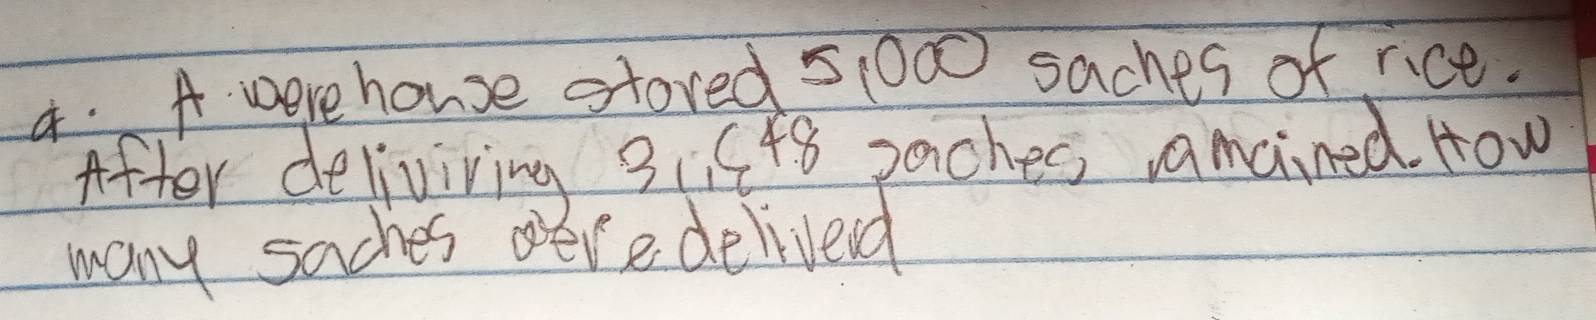 a. A werehouse stored 5,000 saches of rice.
After deliviring saches ramained. How
many saches were deliverd